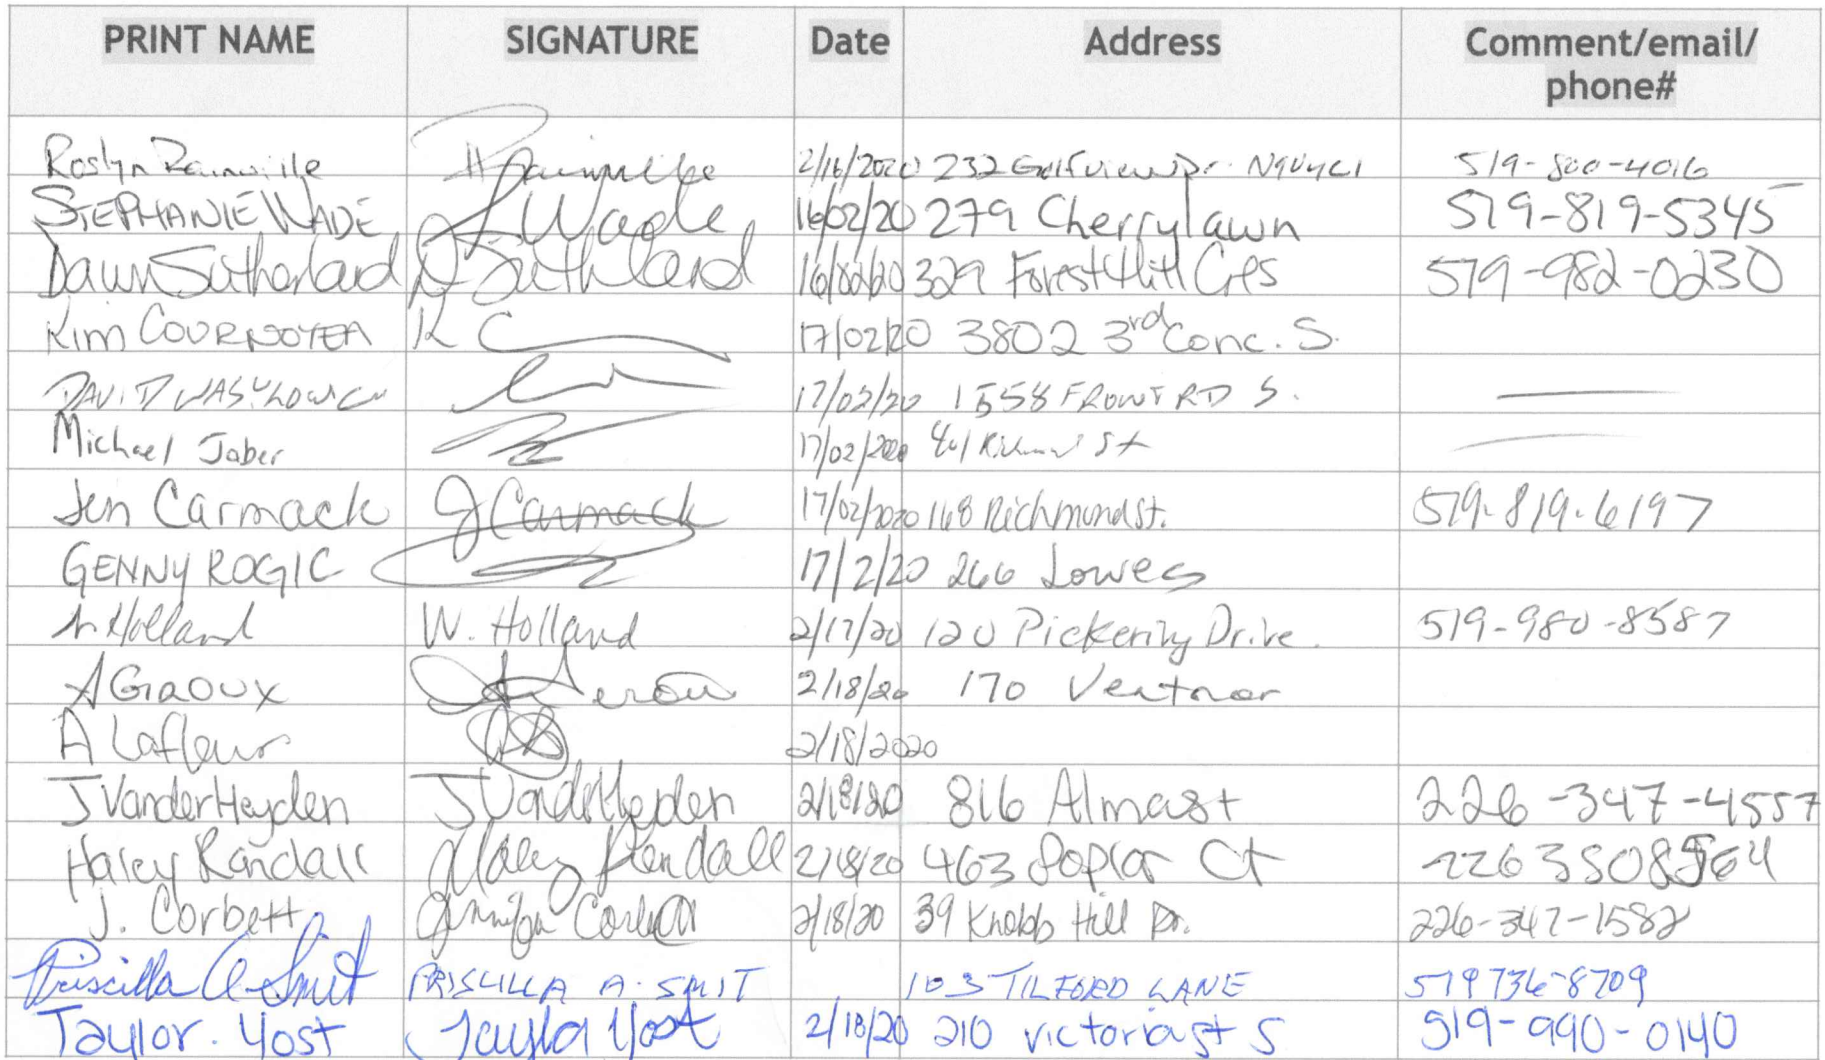 PRINT NAME SIGNATURE Date Address Comment/email/
phone#
Roslyn Rainville Rainville 2/16/2020 232 Golfview Dr. N9V4C1 519-800-4016
STEPHANIE WADE S. Wade 16/02/20 279 Cherrylawn 519-819-5345
Dawn Sutherland D Sutherland 16/02/20 329 Forest Hill Cres 519-982-0230
Kim COURNOYEA K C 17/02/20 3802 3rd Conc. S.
DAVID WASYLOWICH 17/02/20 1558 FRONT RD S.
Michael Jaber 17/02/2020 Richmond St
Jen Carmack J Carmack 17/02/2020 168 Richmond st. 519-819-6197
GENNY ROGIC 17/2/20 266 Lowes
Holland W. Holland 2/17/20 120 Pickering Drive. 519-980-8587
A GIROUX 2/18/20 170 Ventnor
A Lafleur 2/18/2020
J VanderHeyden J VanderHeyden 2/18/20 816 Alma st 226-347-4557
Haley Randall Haley Randall 2/18/20 463 Poplar Ct 226350
J. Corbett Jennifer Corbett 2/18/20 39 Knobb Hill Dr. 226-347-1582
Priscilla A. Smit PRISCILLA A. SMIT 103 TILFORD LANE 519 736-8709
Taylor. Yost Taylor Yost 2/18/20 210 victoria st S 519-990-0140